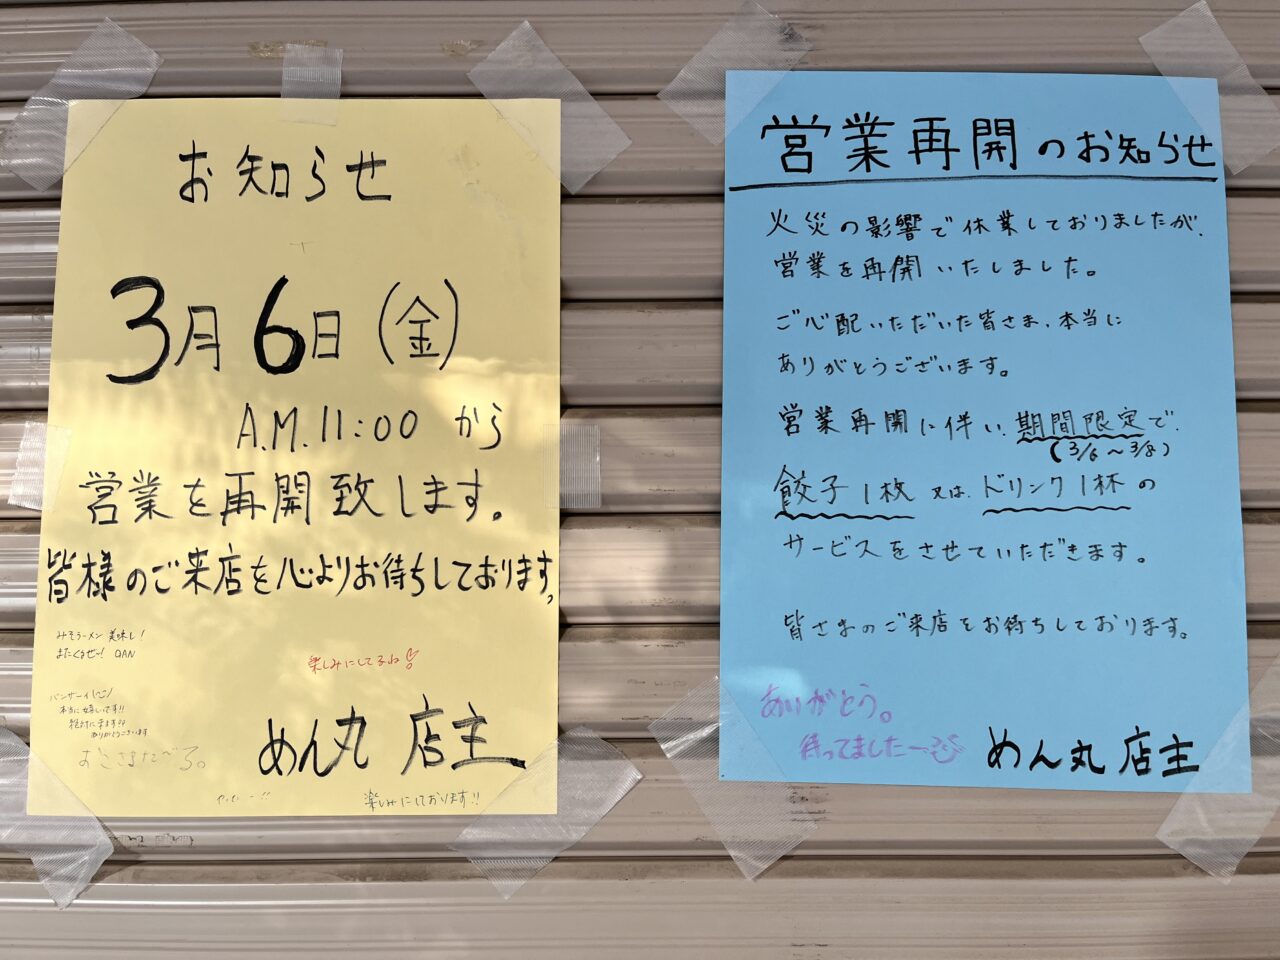 お知らせ
3月6日(金)
A.M.11:00から
営業を再開致します。
皆様のご来店を心よりお待ちしております。
みそラーメン美味し!
またくるぜ~! QAN
楽しみにしてるね
バンザーイ
本当に嬉しいです!!
絶対に来ます
ありがとうございます
めん丸 店主
楽しみにしております!!
営業再開のお知らせ
火災の影響で休業しておりましたが、
営業を再開いたしました。
ご心配いただいた皆さま、本当に
ありがとうございます。
営業再開に伴い、期間限定で、
(3/6~3/8)
餃子1枚又は、ドリンク1杯の
サービスをさせていただきます。
皆さまのご来店をお待ちしております。
ありがとう。
待ってました
めん丸 店主